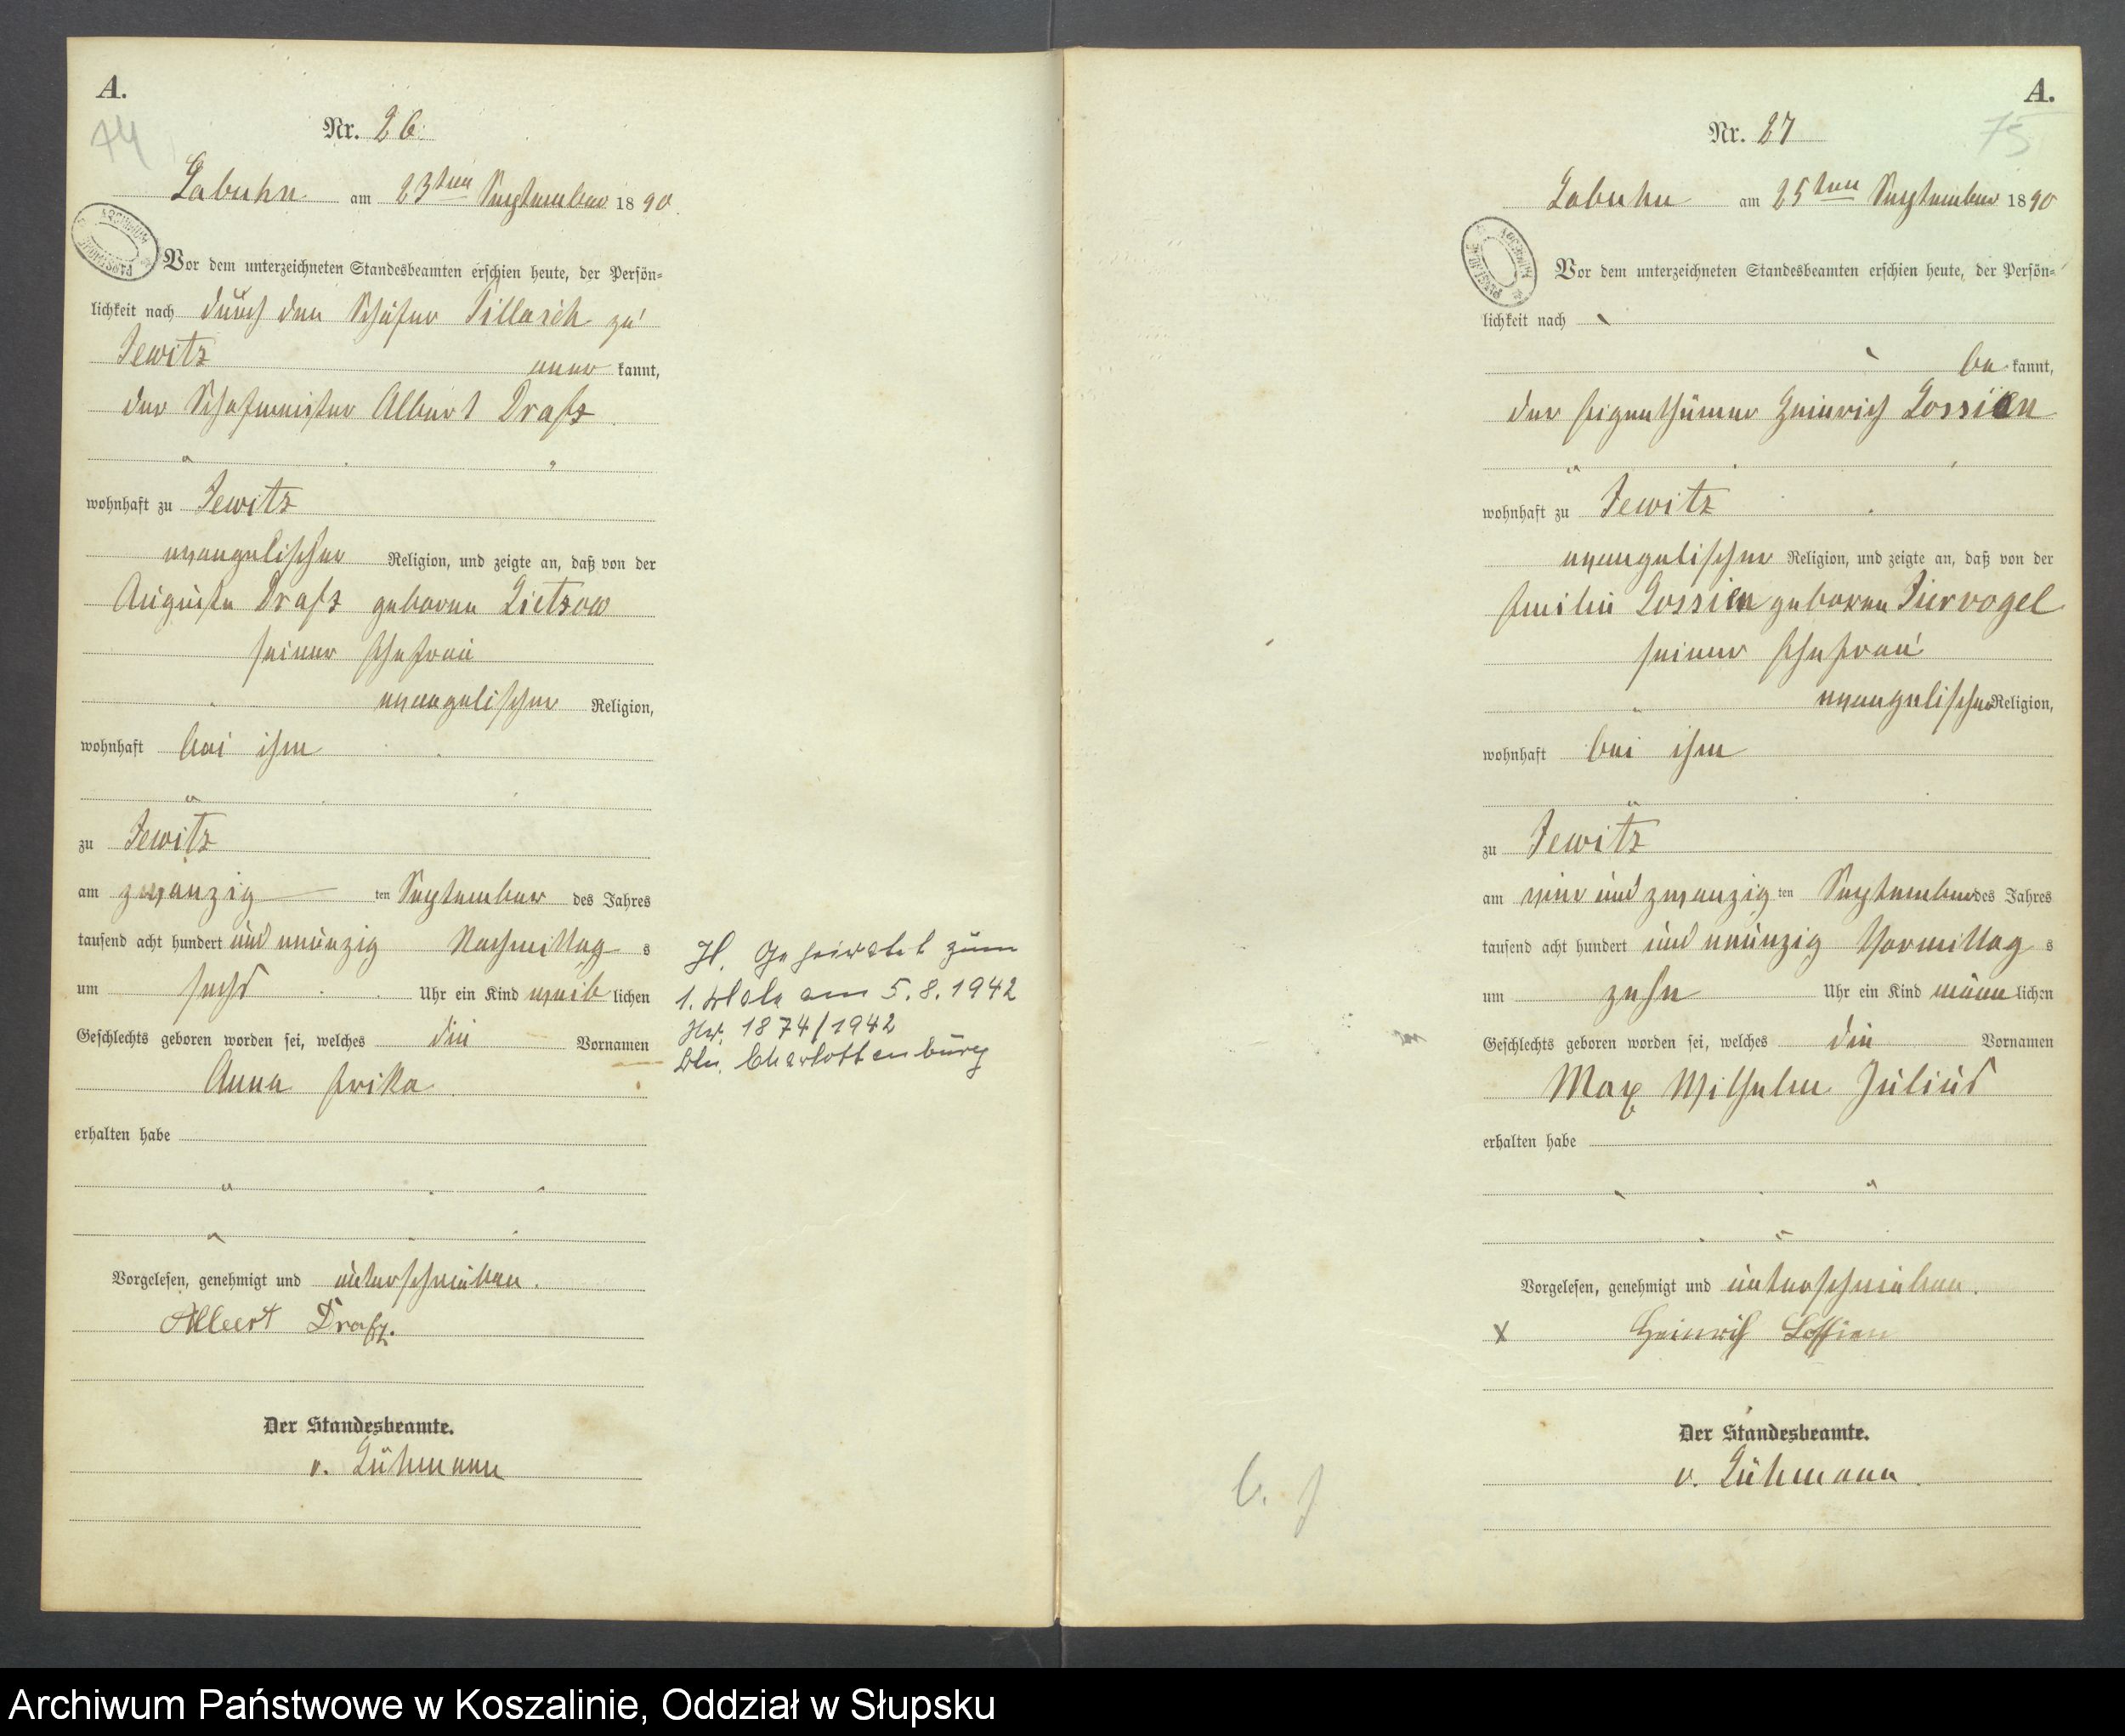 A.
74
Nr. 26.
Labuhn am 23ten September 1890.
Vor dem unterzeichneten Standesbeamten erschien heute, der Persön=
lichkeit nach durch den Schäfer Sillasch zu
Jewitz aner kannt,
der Schafmeister Albert Drafz
wohnhaft zu Jewitz
evangelischer Religion, und zeigte an, daß von der
Auguste Drafz geboren Lietzow
seiner Ehefrau
evangelischer Religion,
wohnhaft bei ihm
zu Jewitz
am zwanzig ten September des Jahres
tausend acht hundert und neunzig Nachmittag s
um sechs Uhr ein Kind weib lichen
Geschlechts geboren worden sei, welches die Vornamen
Anna Erika
erhalten habe
Vorgelesen, genehmigt und unterschrieben.
Albert Drafz.
Der Standesbeamte.
v. Lühmann
Geheiratet zum
1. Male am 5.8.1942
Nr. 1874/1942
Bln. Charlottenburg
A.
75
Nr. 27
Labuhn am 25ten September 1890
Vor dem unterzeichneten Standesbeamten erschien heute, der Persön=
lichkeit nach
be kannt,
der Eigenthümer Heinrich Lossien
wohnhaft zu Jewitz
evangelischer Religion, und zeigte an, daß von der
Emilie Lossien geboren Tiervogel
seiner Ehefrau
evangelischer Religion,
wohnhaft bei ihm
zu Jewitz
am vier und zwanzig ten September des Jahres
tausend acht hundert und neunzig Vormittag s
um zehn Uhr ein Kind männ lichen
Geschlechts geboren worden sei, welches die Vornamen
Max Wilhelm Julius
erhalten habe
Vorgelesen, genehmigt und unterschrieben.
x Heinrich Lossien
Der Standesbeamte.
v. Lühmann.
Archiwum Państwowe w Koszalinie, Oddział w Słupsku